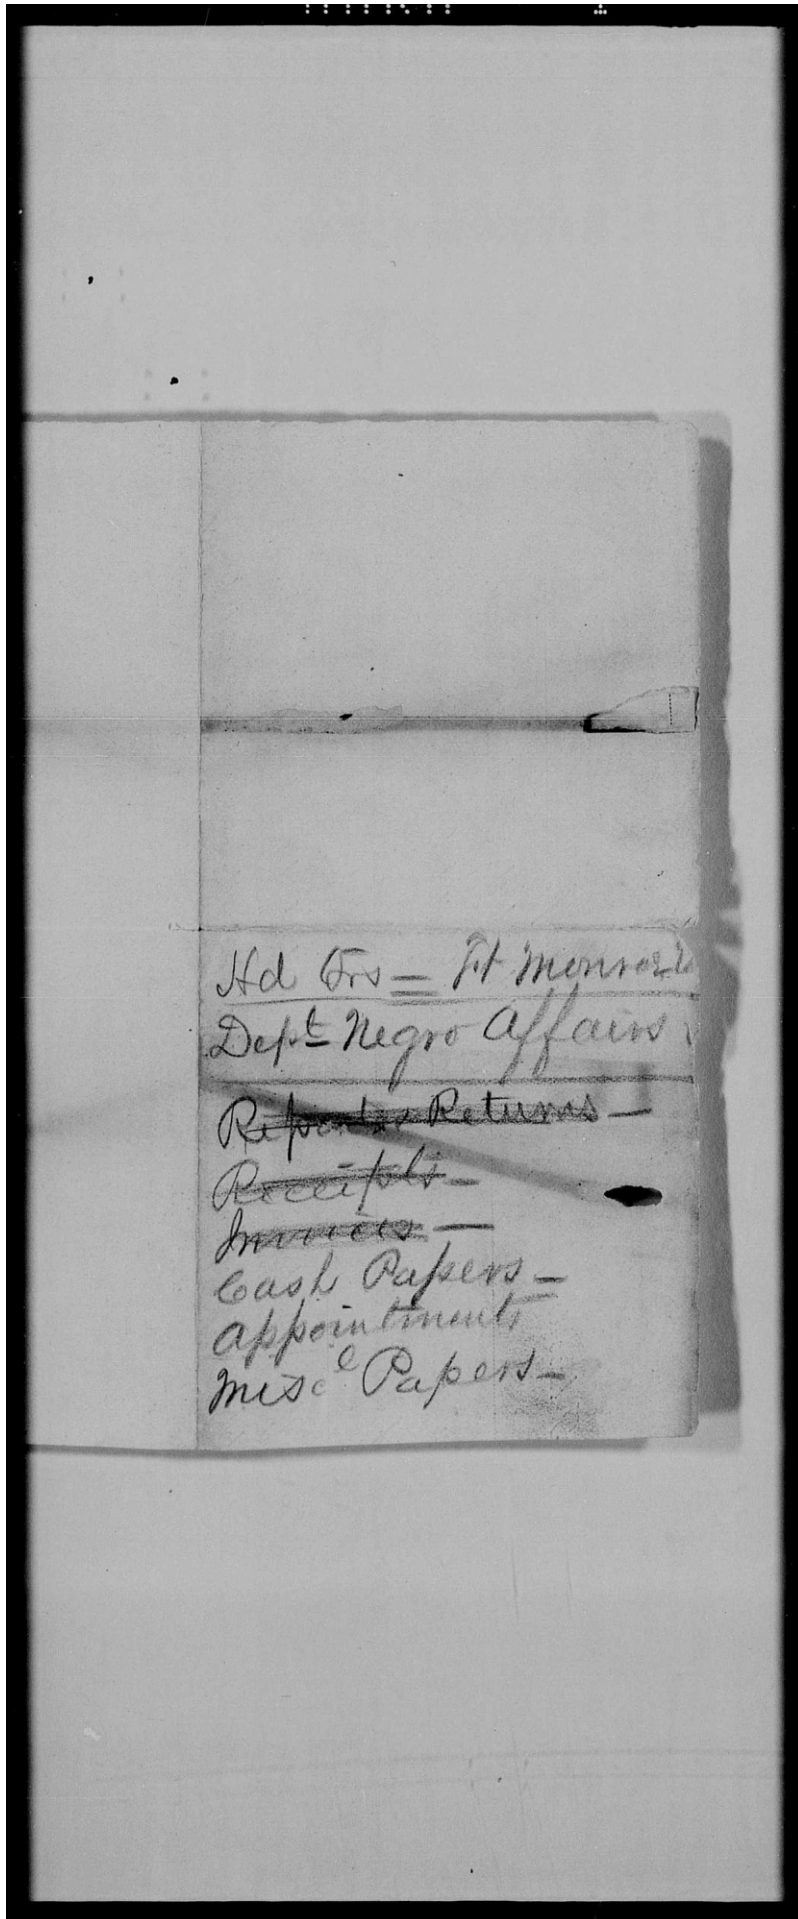 Hd Qrs = Ft Monroe
Dept Negro Affairs
Reports & Returns —
Receipts —
Invoices —
Cash Papers —
Appointments
Miscl Papers —